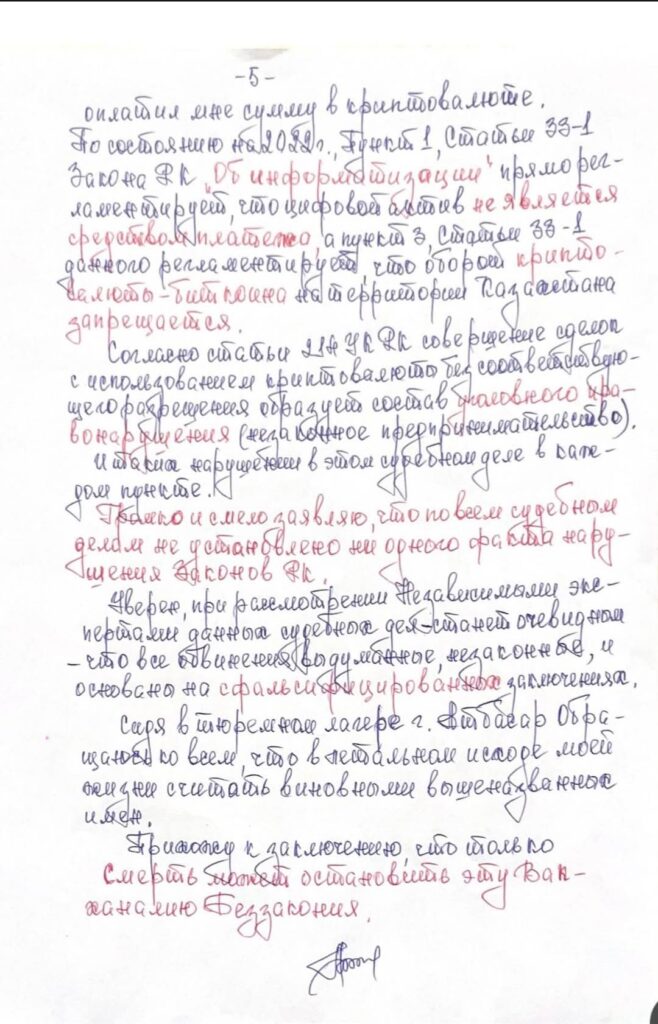 -5-
оплатил мне сумму в криптовалюте.
По состоянию на 2022 г., Пункт 1, Статьи 33-1
Закона РК „Об информатизации" прямо рег-
ламентирует, что цифровой актив не является
средством платежа, а пункт 3, Статьи 33-1
данного регламентирует, что оборот крипто-
валюты-биткоина на территории Казахстана
запрещается.
Согласно статьи 214 УК РК совершение сделок
с использованием криптовалюты без соответствую-
щего разрешения образует состав уголовного пра-
вонарушения (незаконное предпринимательство).
И таких нарушений в этом судебном деле в каж-
дом пункте.
Громко и смело заявляю, что по всем судебным
делам не установлено ни одного факта нару-
шения Законов РК.
Уверен, при рассмотрении Независимыми экс-
пертами данных судебных дел-станет очевидным
-что все обвинения выдуманные, незаконные, и
основаны на сфальсифицированных заключениях.
Сидя в тюремном лагере г. Атбасар Обра-
щаюсь ко всем, что в летальном исходе моей
жизни считать виновными вышеназванных
имен.
Прихожу к заключению, что только
Смерть может остановить эту Вак-
ханалию Беззакония.